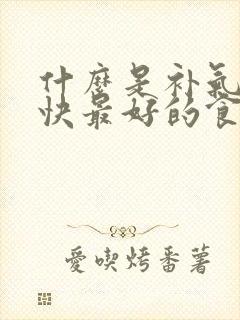 什麼是补氣
快最好的食
愛喫烤番薯